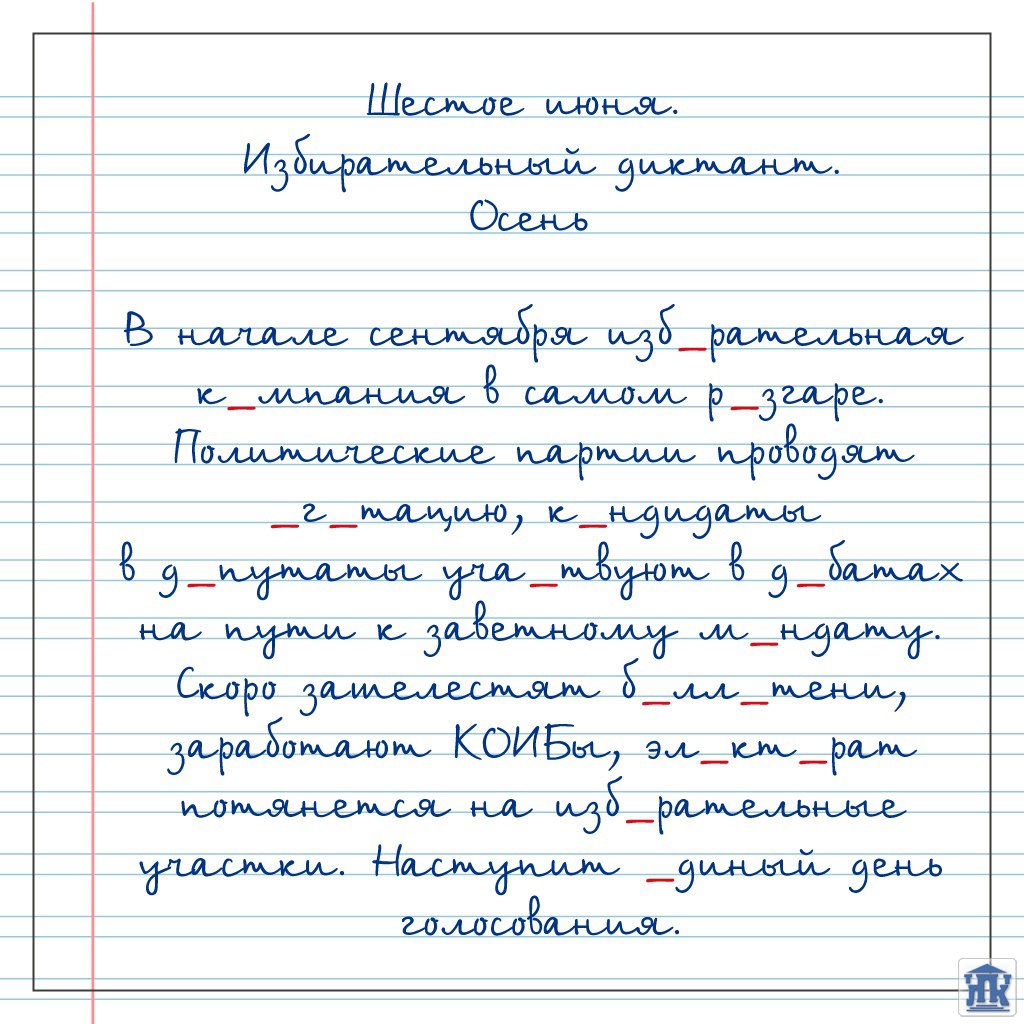 Шестое июня.
Избирательный диктант.
Осень
В начале сентября изб_рательная
к_мпания в самом р_згаре.
Политические партии проводят
_г_тацию, к_ндидаты
в д_путаты уча_твуют в д_батах
на пути к заветному м_ндату.
Скоро зашелестят б_лл_тени,
заработают КОИБы, эл_кт_рат
потянется на изб_рательные
участки. Наступит _диный день
голосования.